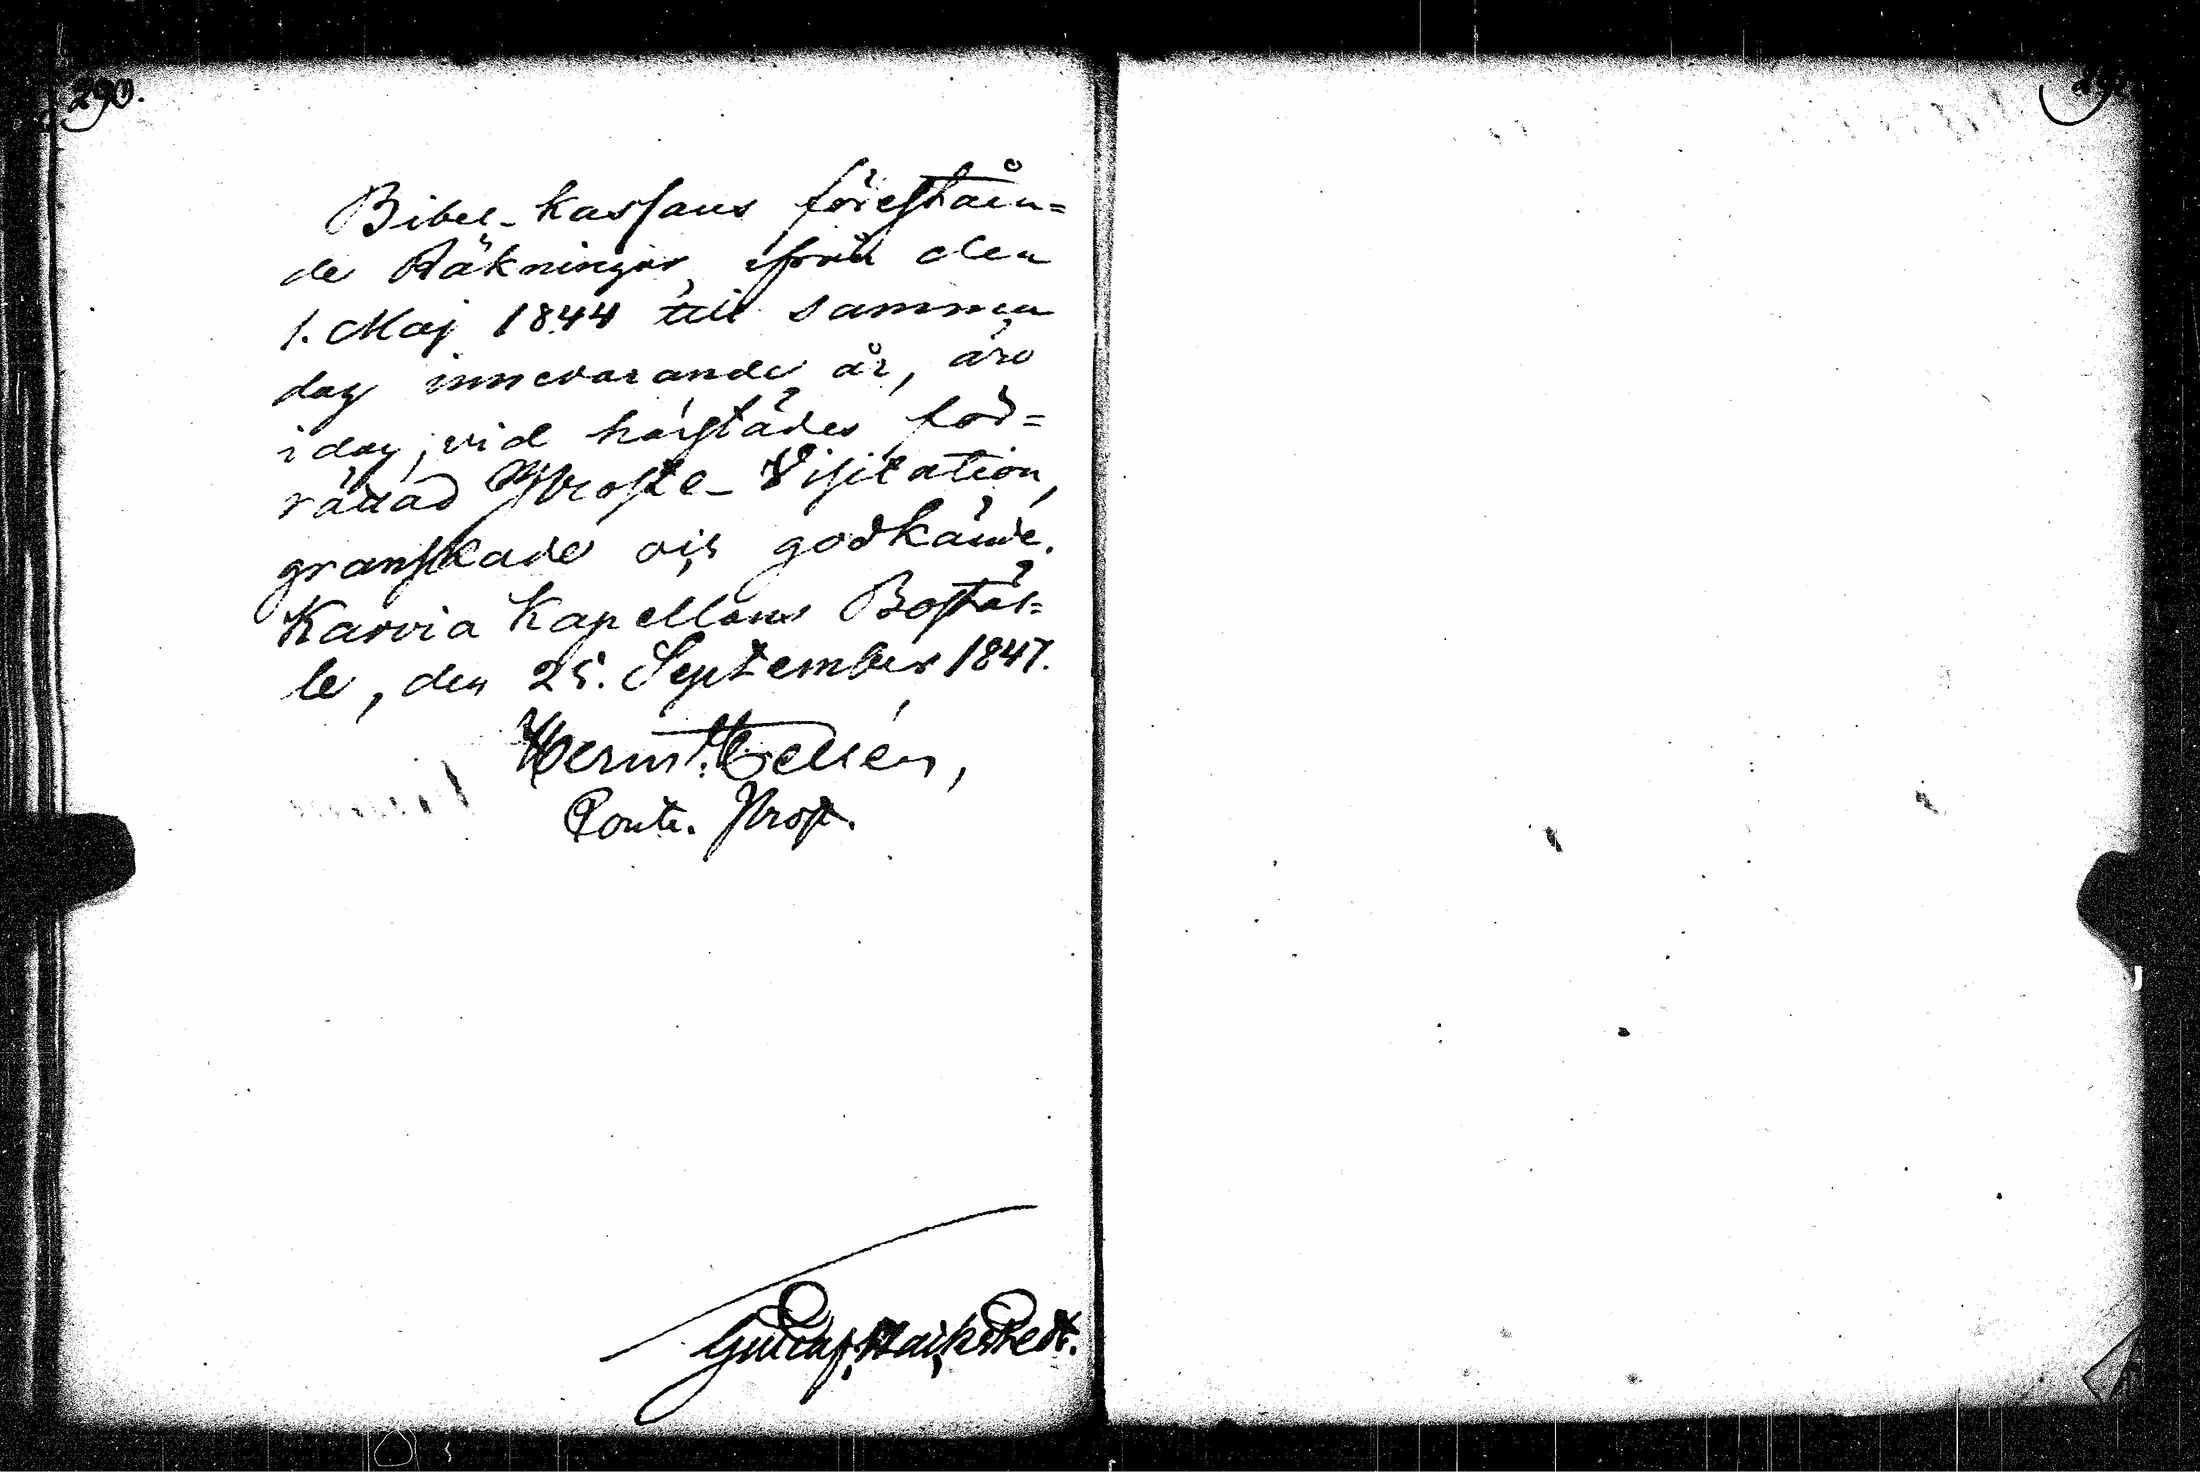 290.
Bibel-Kassans föreståen=
de Räkningar, ifrån den
1. Maj 1844 till samma
dag innevarande år, äro
i dag, vid härstädes för=
rättad Proste-Visitation,
granskade och godkände.
Karvia Kapellans Bostäl=
le, den 25. September 1847.
Herm. Hellén,
Contr. Prost.
Gustaf